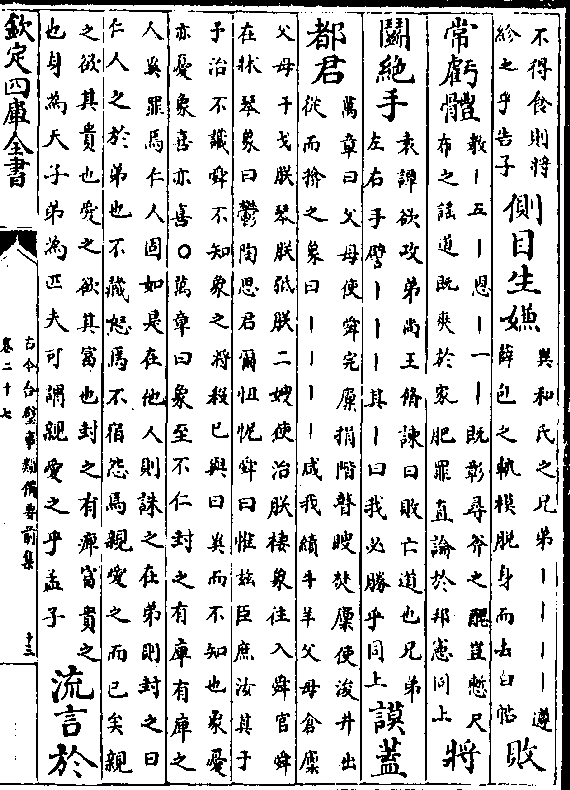 不得食則將
紾之乎告子
側目生嫌
與和氏之兄弟丨丨丨丨遵
薛包之軌模脱身而去白帖
敗
常虧體
教丨五丨恩丨一丨既彰尋斧之醜豈慙尺
布之謡道既爽於家肥罪直論於邦憲同上
將
鬬絶手
袁譚欲攻弟尚王脩諫曰敗亡道也兄弟
左右手譬丨丨丨其丨曰我必勝乎同上
謨蓋
都君
萬章曰父母使舜完廩捐階瞽瞍焚廩使浚井出
從而揜之象曰丨丨丨丨咸我績牛羊父母倉廩
父母干戈朕琴朕弤朕二嫂使治朕棲象往入舜宫舜
在牀琴象曰鬱陶思君爾忸怩舜曰惟兹臣庶汝其于
予治不識舜不知象之將殺已與曰奚而不知也象憂
亦憂象喜亦喜○萬章曰象至不仁封之有庳有庳之
人奚罪焉仁人固如是在他人則誅之在弟則封之曰
仁人之於弟也不藏怒焉不宿怨焉親愛之而已矣親
之欲其貴也愛之欲其富也封之有庳富貴之
也身為天子弟為匹夫可謂親愛之乎孟子
流言於
欽定四庫全書
古今合璧事類備要前集
卷二十七
十三